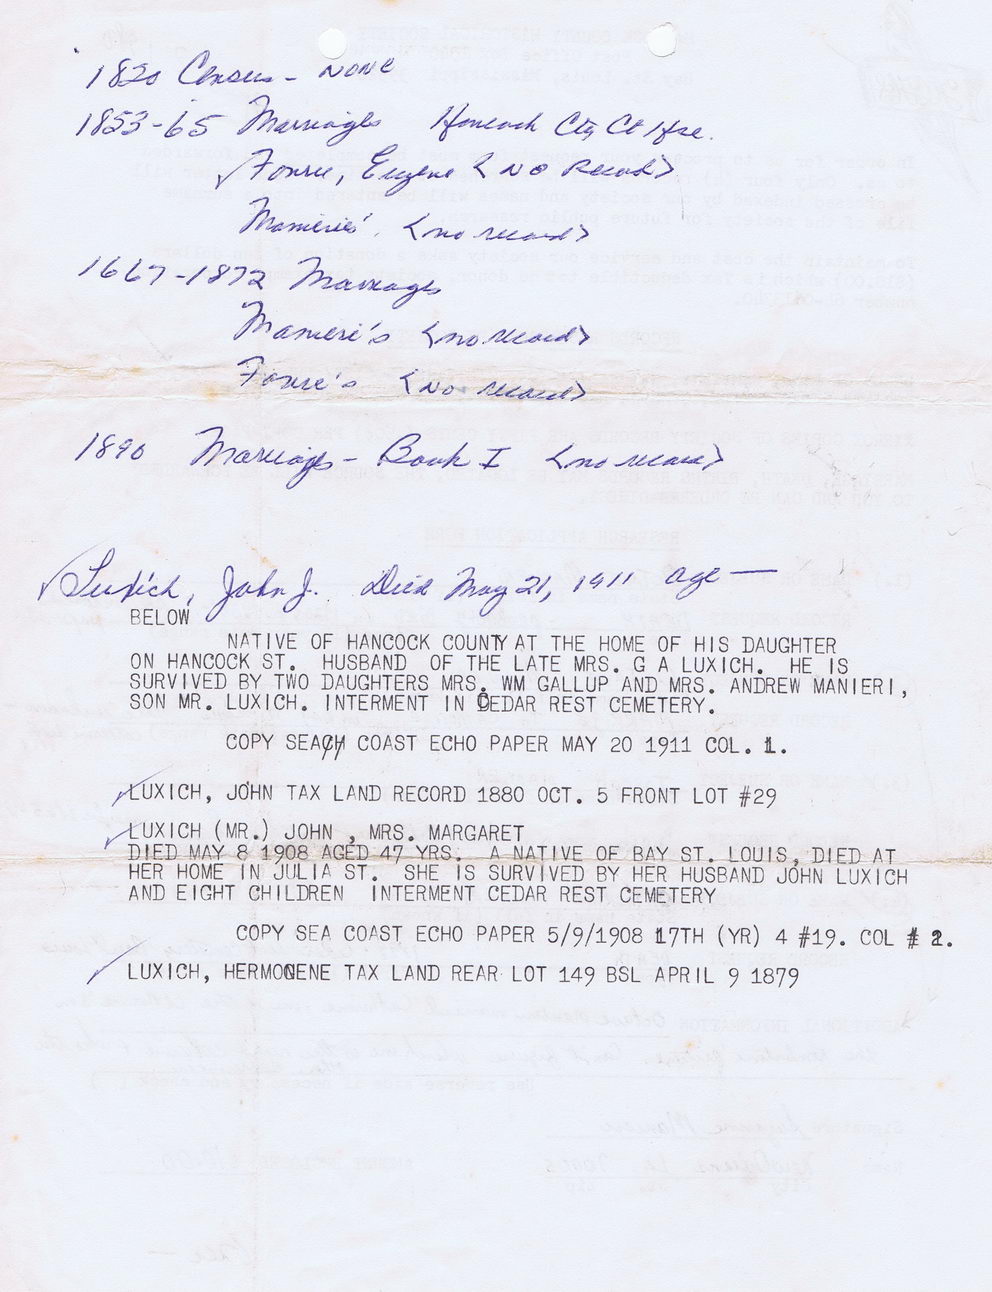 1820 Census - NONE
1853-65 Marriages Hancock Cty Ct Hse.
Fourie, Eugene <NO Record>
Manieri's. <no record>
1667-1872 Marriages
Manieri's <no record>
Fourie's <No record>
1890 Marriages - Book I <no record>
Luxich, John J. Died May 21, 1911 age —
BELOW
NATIVE OF HANCOCK COUNTY AT THE HOME OF HIS DAUGHTER
ON HANCOCK ST. HUSBAND OF THE LATE MRS. G A LUXICH. HE IS
SURVIVED BY TWO DAUGHTERS MRS. WM GALLUP AND MRS. ANDREW MANIERI,
SON MR. LUXICH. INTERMENT IN CEDAR REST CEMETERY.
COPY SEA COAST ECHO PAPER MAY 20 1911 COL. 1.
LUXICH, JOHN TAX LAND RECORD 1880 OCT. 5 FRONT LOT #29
LUXICH (MR.) JOHN , MRS. MARGARET
DIED MAY 8 1908 AGED 47 YRS. A NATIVE OF BAY ST. LOUIS, DIED AT
HER HOME IN JULIA ST. SHE IS SURVIVED BY HER HUSBAND JOHN LUXICH
AND EIGHT CHILDREN INTERMENT CEDAR REST CEMETERY
COPY SEA COAST ECHO PAPER 5/9/1908 17TH (YR) 4 #19. COL # 2.
LUXICH, HERMOGENE TAX LAND REAR LOT 149 BSL APRIL 9 1879